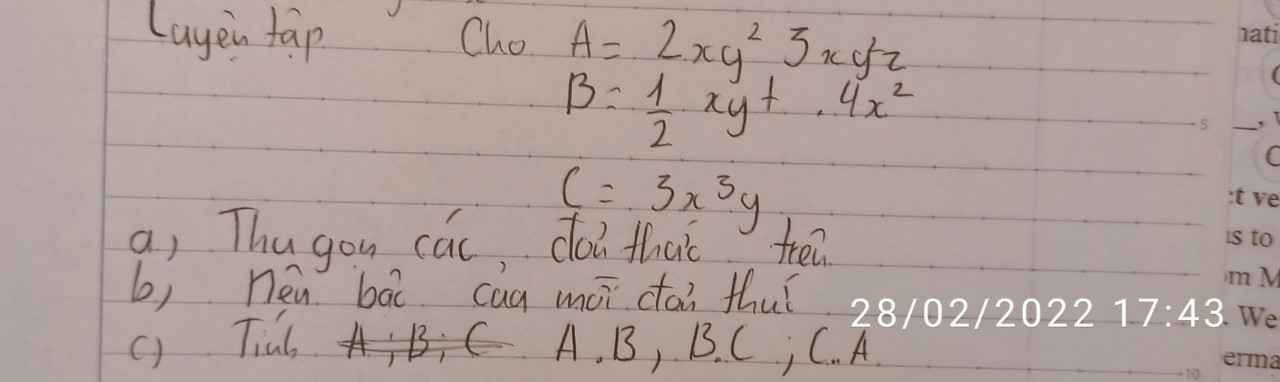 Luyện tập Cho A = 2xy² 3xyz
B = 1/2 xyt . 4x²
C = 3x³y
a, Thu gọn các đơn thức trên
b, Nêu bậc của mỗi đơn thức
c) Tính A; B; C A.B, B.C; C.A
28/02/2022 17:43
nati
5
t ve
s to
om M
. We
erma
10